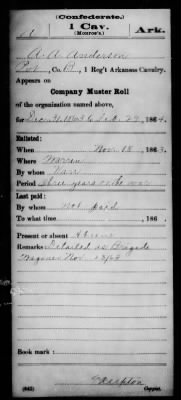 (Confederate.)
A 1 Cav. Ark.
(Monroe's.)
A. A. Anderson
Pvt, Co. , 1 Reg't Arkansas Cavalry.
Appears on
Company Muster Roll
of the organization named above,
for Dec 31, 1863 to Feb. 29, 1864.
Enlisted:
When Nov. 18, 1863.
Where Warren
By whom
Period three years or the war
Last paid:
By whom Not paid
To what time , 186 .
Present or absent Absent
Remarks: Detailed as Brigade
Wagoner Nov.
Book mark:
(642) Copyist.